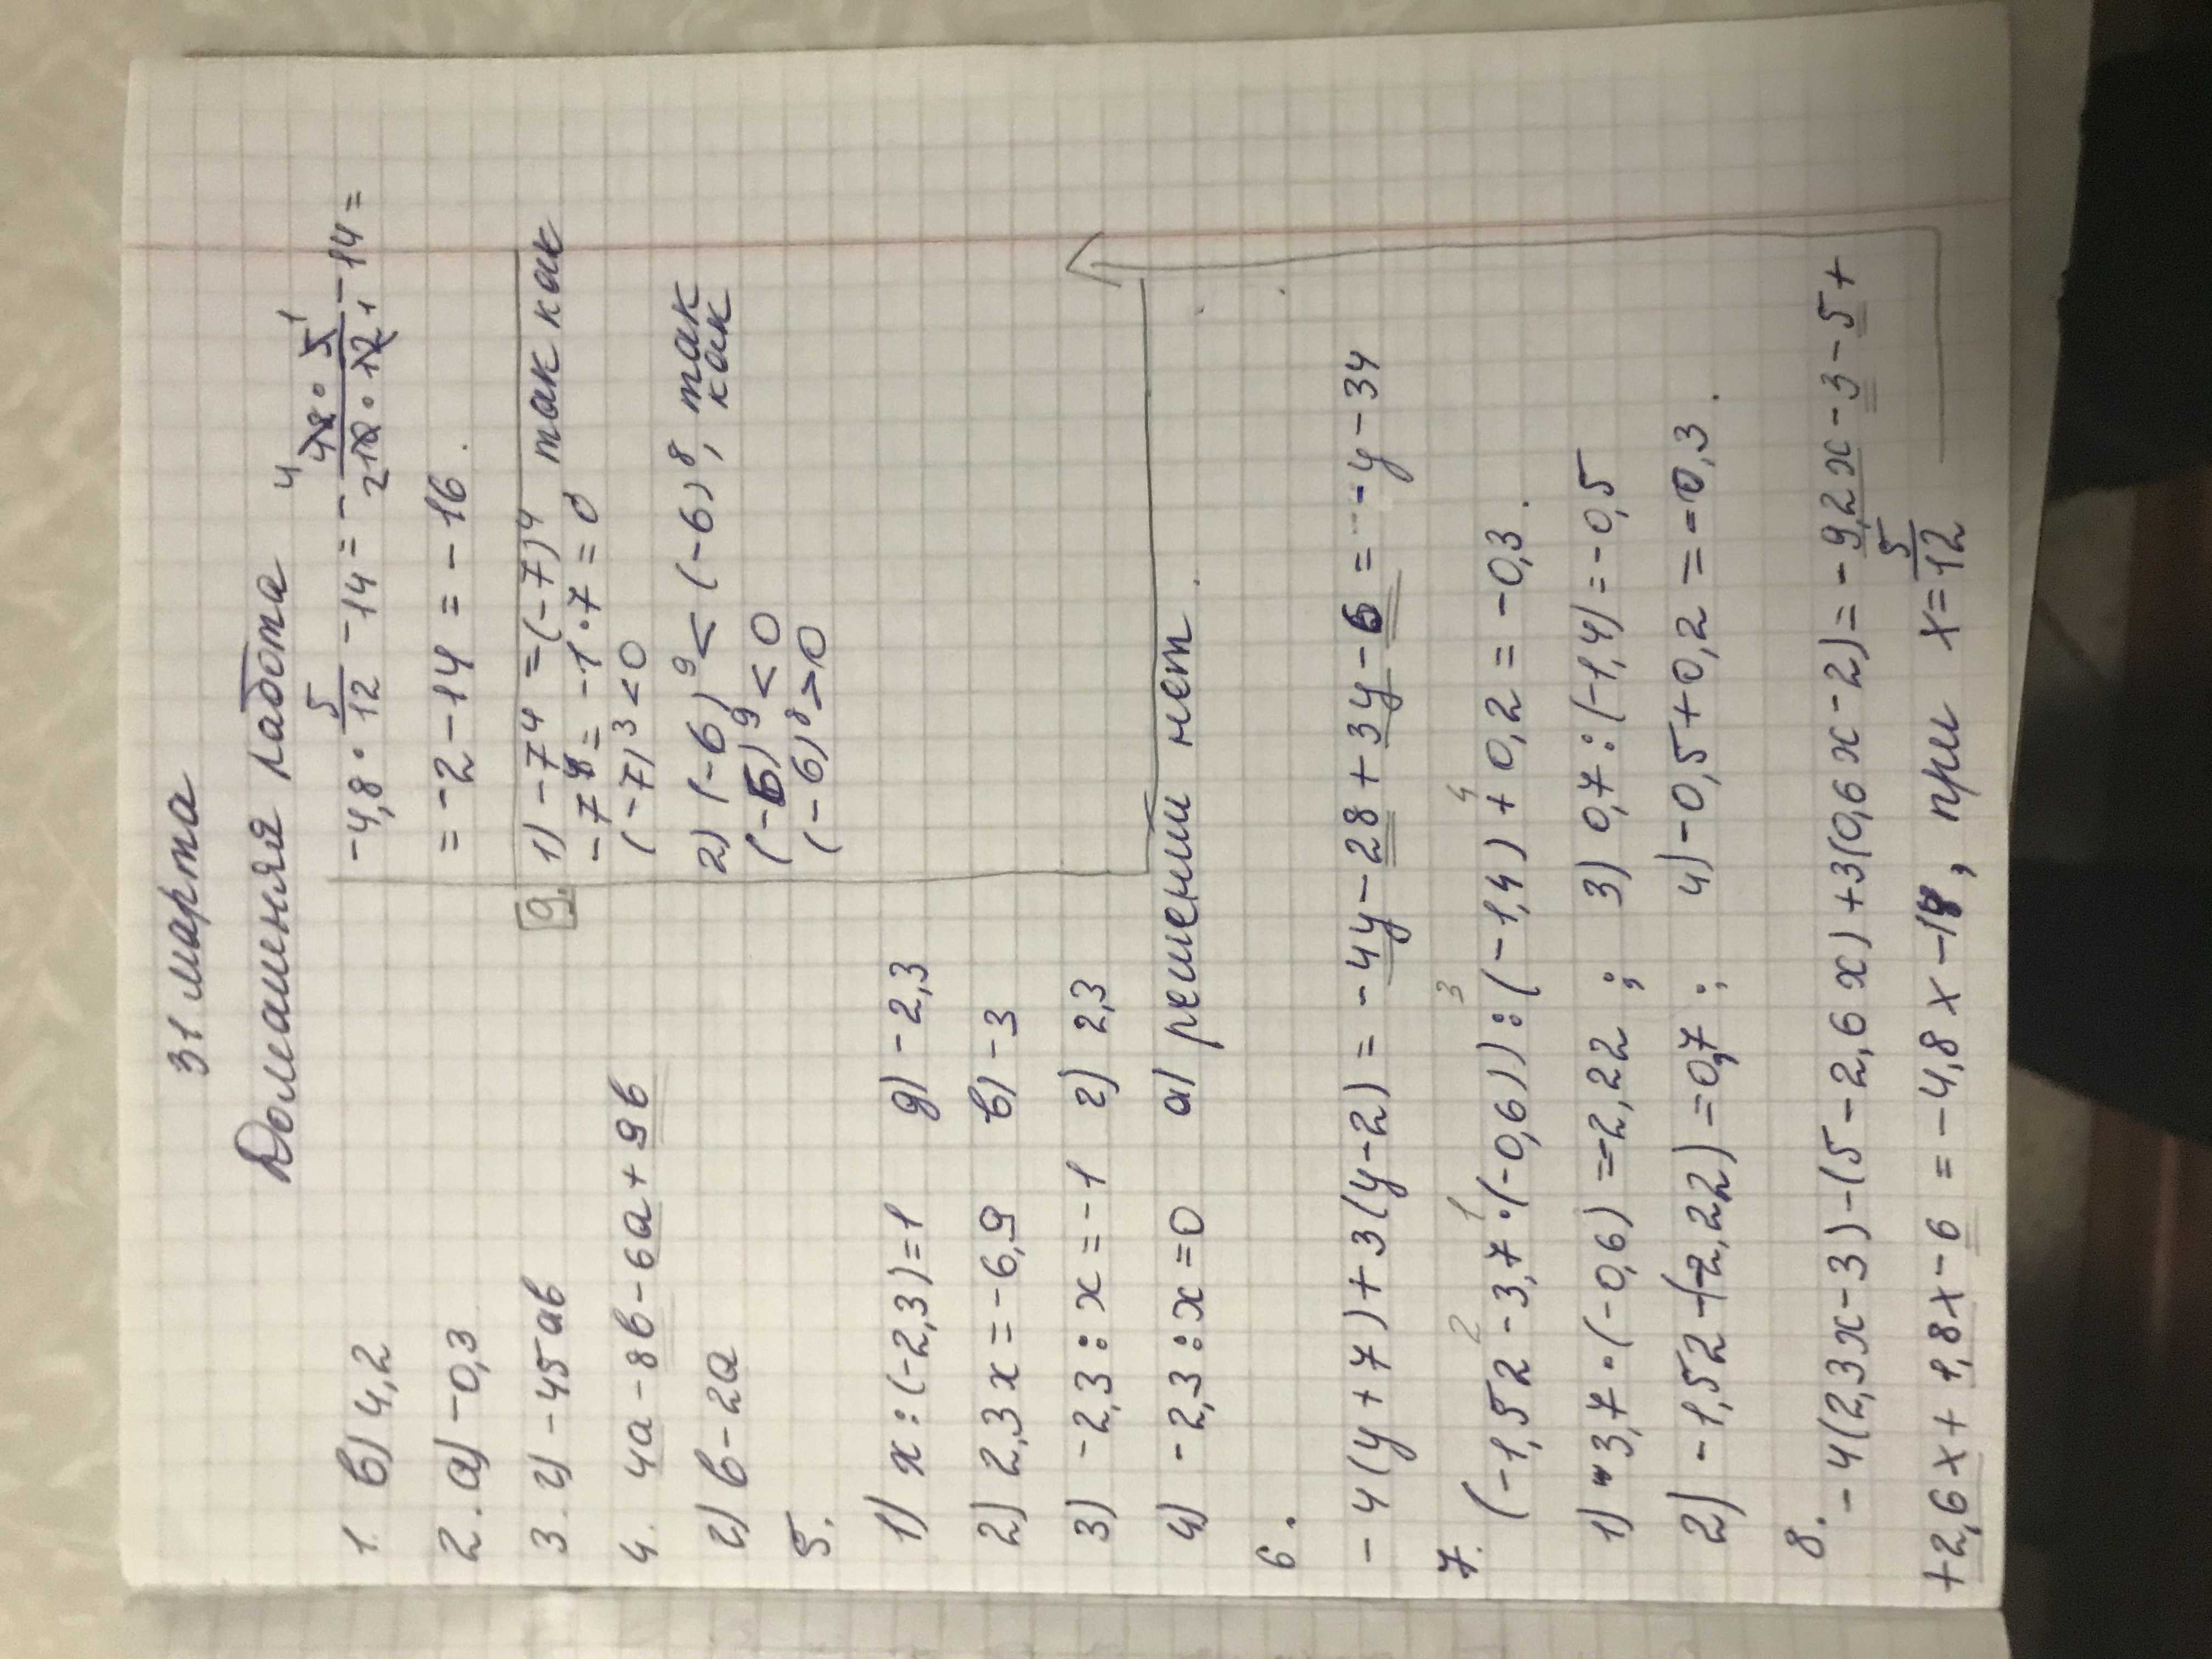 31 марта
Домашняя работа
1. в) 4,2
2. а) -0,3
3. г) -45ab
4. 4a-8b-6a+9b
г) b-2a
5.
1) x:(-2,3)=1 д) -2,3
2) 2,3x=-6,9 в) -3
3) -2,3:x=-1 г) 2,3
4) -2,3:x=0 а) решений нет.
6.
-4(y+7)+3(y-2)=-4y-28+3y-6=-y-34
7. (-1,52-3,7·(-0,6)):(-1,4)+0,2=-0,3.
1) 3,7·(-0,6)=-2,22; 3) 0,7:(-1,4)=-0,5
2) -1,52-(-2,22)=0,7; 4) -0,5+0,2=-0,3.
8.
-4(2,3x-3)-(5-2,6x)+3(0,6x-2)=-9,2x-3-5+
+2,6x+1,8x-6=-4,8x-18, при x=5/12
-4,8·5/12-14=-48·5/10·12-14=
=-2-14=-16.
9. 1) -7⁴=(-7)⁴ так как
-7⁴=-1·7=0
(-7)³<0
2) (-6)⁹<(-6)⁸, так как
(-6)⁹<0
(-6)⁸>0